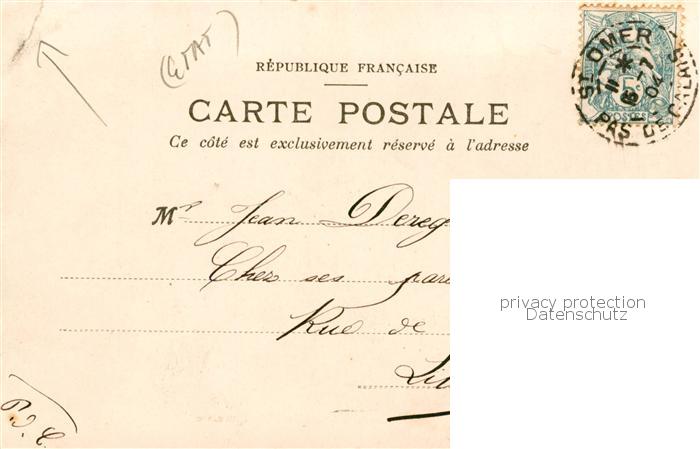 (ETAT)
RÉPUBLIQUE FRANÇAISE
CARTE POSTALE
Ce côté est exclusivement réservé à l'adresse
ST OMER
PAS DE CALAIS
5c
POSTES
Mr Jean Dereg
Chez ses pare
Rue de
Lil
privacy protection
Datenschutz